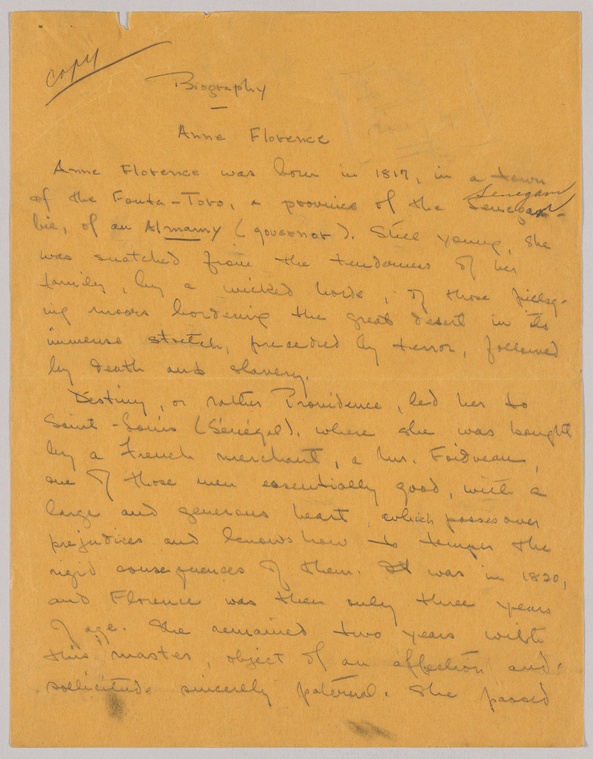 copy
Biography
Anne Florence
Anne Florence was born in 1817, in a town
of the Fouta-Toro, a province of the Senegam-
bie, of an Almamy (governor). Still young, she
was snatched from the tenderness of her
family, by a wicked horde, of those pillag-
ing moors bordering the great desert in its
immense stretch, preceded by terror, followed
by death and slavery.
Destiny, or rather Providence, led her to
Saint-Louis (Sénégal), where she was bought
by a French merchant, a Mr.
one of those men essentially good, with a
large and generous heart, which passes over
prejudices and knows how to temper the
rigid consequences of them. It was in 1820,
and Florence was then only three years
of age. She remained two years with
this master, object of an affection and
sollicitude sincerely paternal. She passed